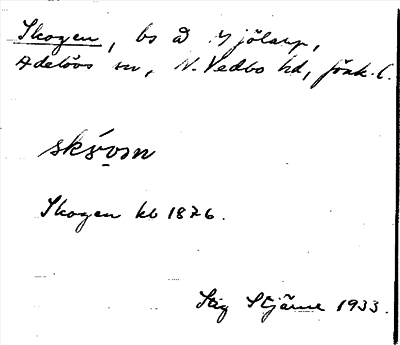 Skogen, bs å Mjölarp,
Adelövs sn, N. Vedbo hd, Jönk. l.
Skogen kb 1876.
Stig Stjärne 1933.